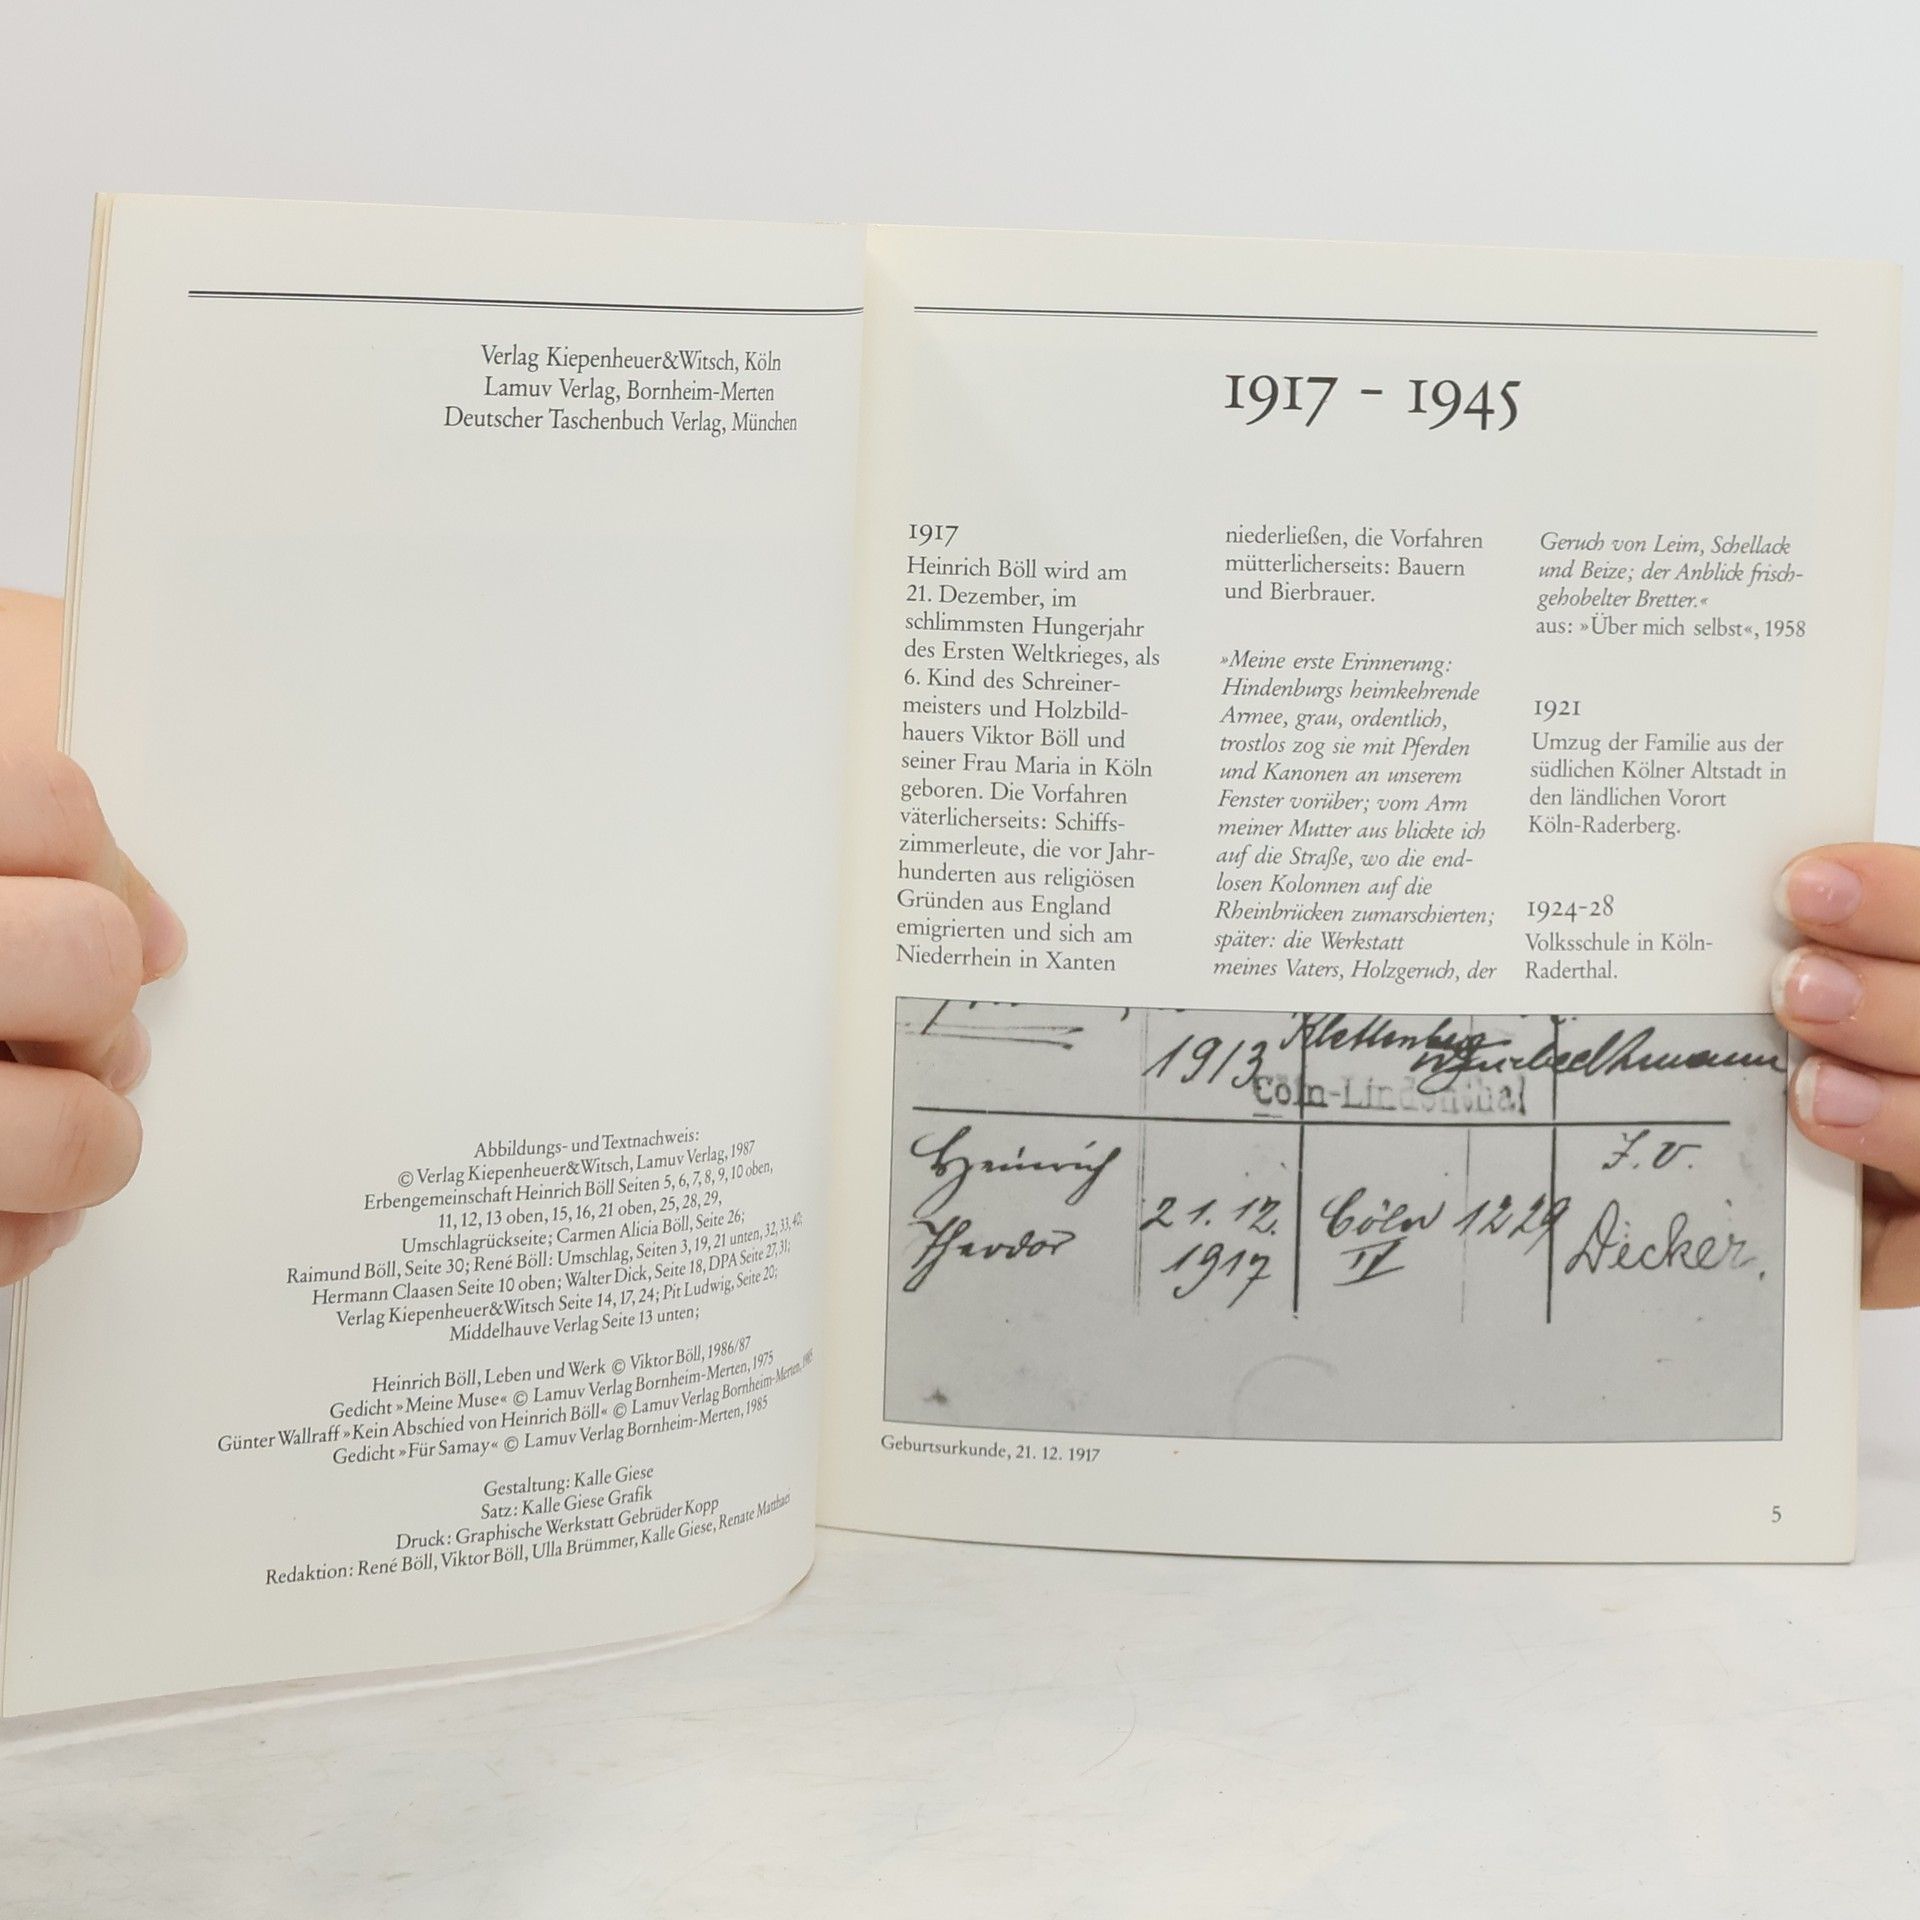 Verlag Kiepenheuer&Witsch, Köln
Lamuv Verlag, Bornheim-Merten
Deutscher Taschenbuch Verlag, München
Abbildungs- und Textnachweis:
© Verlag Kiepenheuer&Witsch, Lamuv Verlag, 1987
Erbengemeinschaft Heinrich Böll Seiten 5, 6, 7, 8, 9, 10 oben,
11, 12, 13 oben, 15, 16, 21 oben, 25, 28, 29,
Umschlagrückseite; Carmen Alicia Böll, Seite 26;
Raimund Böll, Seite 30; René Böll: Umschlag, Seiten 3, 19, 21 unten, 32, 33, 40;
Hermann Claasen Seite 10 oben; Walter Dick, Seite 18, DPA Seite 27, 31;
Verlag Kiepenheuer&Witsch Seite 14, 17, 24; Pit Ludwig, Seite 20;
Middelhauve Verlag Seite 13 unten;
Heinrich Böll, Leben und Werk © Viktor Böll, 1986/87
Gedicht »Meine Muse« © Lamuv Verlag Bornheim-Merten, 1975
Günter Wallraff »Kein Abschied von Heinrich Böll« © Lamuv Verlag Bornheim-Merten, 1985
Gedicht »Für Samay« © Lamuv Verlag Bornheim-Merten, 1985
Gestaltung: Kalle Giese
Satz: Kalle Giese Grafik
Druck: Graphische Werkstatt Gebrüder Kopp
Redaktion: René Böll, Viktor Böll, Ulla Brümmer, Kalle Giese, Renate Matthaei
1917 - 1945
1917
Heinrich Böll wird am
21. Dezember, im
schlimmsten Hungerjahr
des Ersten Weltkrieges, als
6. Kind des Schreiner-
meisters und Holzbild-
hauers Viktor Böll und
seiner Frau Maria in Köln
geboren. Die Vorfahren
väterlicherseits: Schiffs-
zimmerleute, die vor Jahr-
hunderten aus religiösen
Gründen aus England
emigrierten und sich am
Niederrhein in Xanten
niederließen, die Vorfahren
mütterlicherseits: Bauern
und Bierbrauer.
»Meine erste Erinnerung:
Hindenburgs heimkehrende
Armee, grau, ordentlich,
trostlos zog sie mit Pferden
und Kanonen an unserem
Fenster vorüber; vom Arm
meiner Mutter aus blickte ich
auf die Straße, wo die end-
losen Kolonnen auf die
Rheinbrücken zumarschierten;
später: die Werkstatt
meines Vaters, Holzgeruch, der
Geruch von Leim, Schellack
und Beize; der Anblick frisch-
gehobelter Bretter.«
aus: »Über mich selbst«, 1958
1921
Umzug der Familie aus der
südlichen Kölner Altstadt in
den ländlichen Vorort
Köln-Raderberg.
1924-28
Volksschule in Köln-
Raderthal.
1913 Klettenberg
Cöln-Lindenthal
Heinrich J. V.
Theodor 21. 12. 1917 Cöln IV 1229 Decker.
Geburtsurkunde, 21. 12. 1917
5